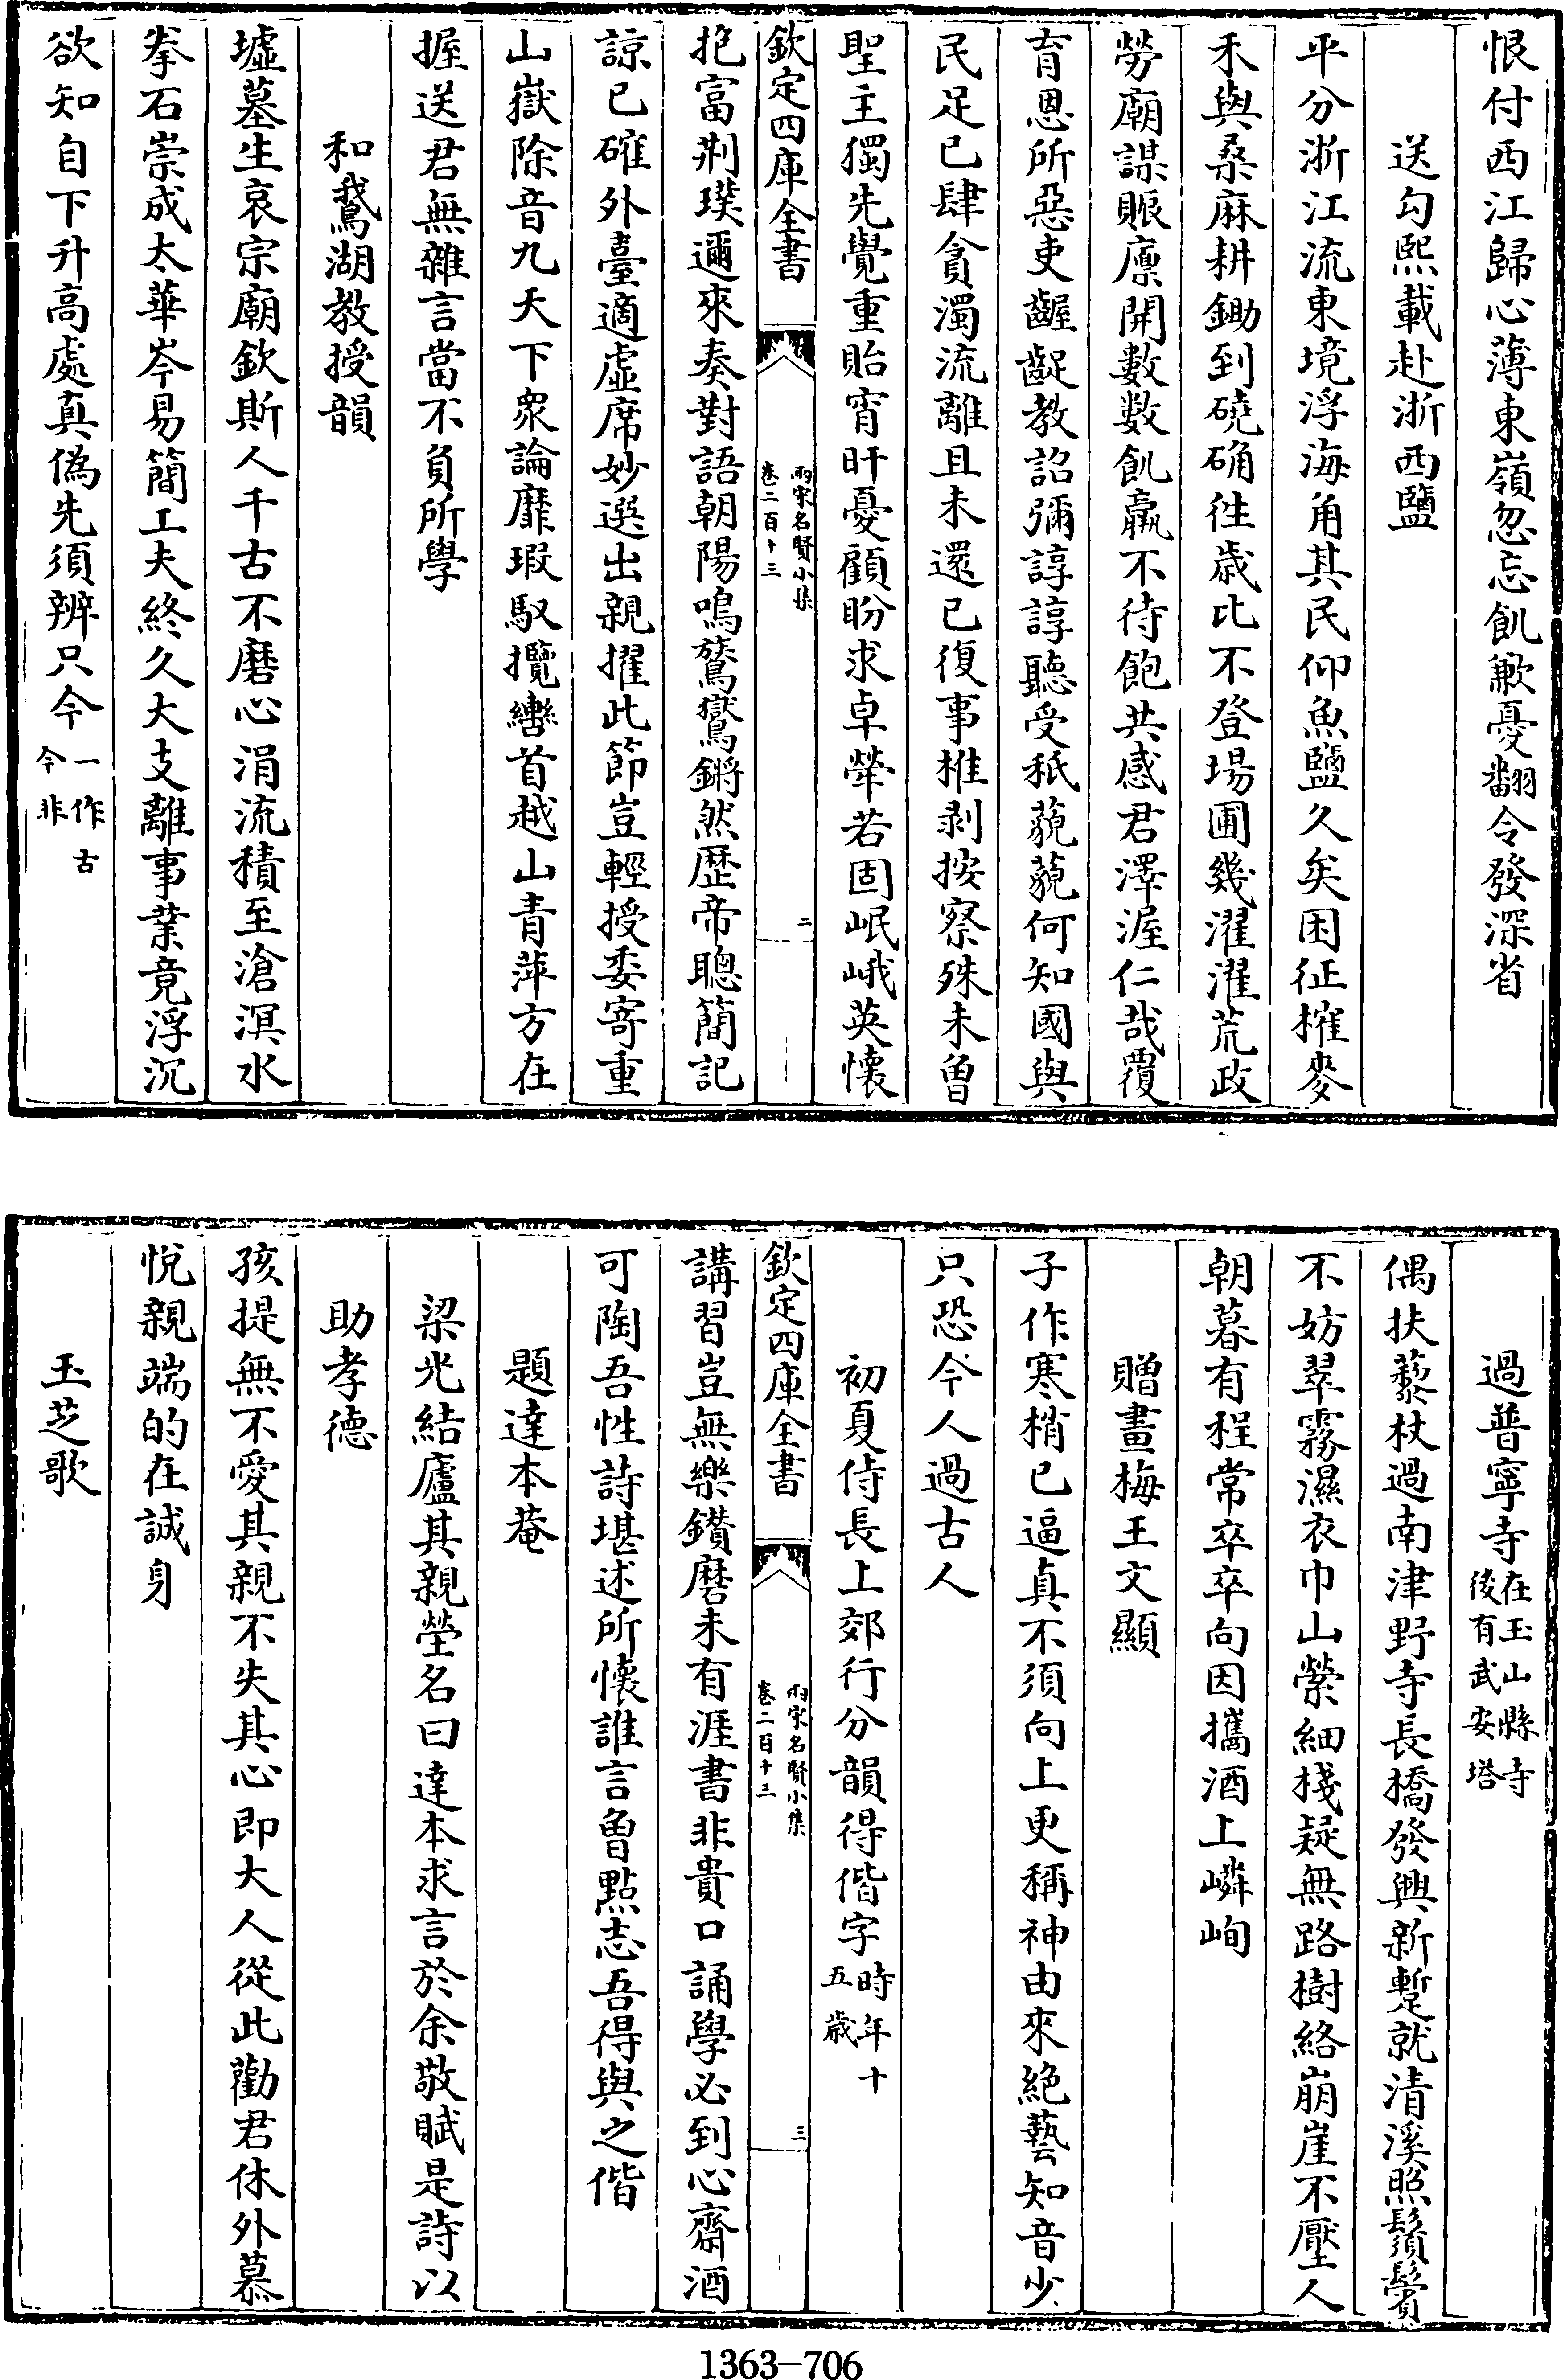 恨付西江歸心薄東嶺忽忘飢歉憂翻令發深省
送勾熙載赴浙西鹽
平分浙江流東境浮海角其民仰魚鹽久矣困征榷麥
禾與桑麻耕鋤到磽确徃歲比不登場圃幾濯濯荒政
勞廟謀賑廩開數數飢羸不待飽共感君澤渥仁哉覆
育恩所惡吏齷齪教詔彌諄諄聽受秖藐藐何知國與
民足已肆貪濁流離且未還已復事椎剥按察殊未曾
聖主獨先覺重貽宵旰憂顧盼求卓犖若固岷峨英懷
欽定四庫全書
兩宋名賢小集
卷二百十三
二
抱富荆璞邇來奏對語朝陽鳴鷟鸑鏘然歴帝聰簡記
諒已確外臺適虛席妙選出親擢此節豈輕授委寄重
山嶽除音九天下衆論靡瑕駁攬轡首越山青萍方在
握送君無雜言當不負所學
和鵞湖教授韻
墟墓生哀宗廟欽斯人千古不磨心涓流積至滄溟水
拳石崇成太華岑易簡工夫終久大支離事業竟浮沉
欲知自下升高處真偽先須辨只今一作古
今非
過普寧寺在玉山縣寺
後有武安塔
偶扶藜杖過南津野寺長橋發興新蹔就清溪照鬚鬢
不妨翠霧濕衣巾山縈細棧疑無路樹絡崩崖不壓人
朝暮有程常卒卒向因攜酒上嶙峋
贈畫梅王文顯
子作寒梢已逼真不須向上更稱神由來絶藝知音少
只恐今人過古人
初夏侍長上郊行分韻得偕字時年十
五歲
欽定四庫全書
兩宋名賢小集
卷二百十三
三
講習豈無樂鑽磨未有涯書非貴口誦學必到心齋酒
可陶吾性詩堪述所懷誰言曾點志吾得與之偕
題達本菴
梁光結廬其親塋名曰達本求言於余敬賦是詩以
助孝德
孩提無不愛其親不失其心即大人從此勸君休外慕
悅親端的在誠身
玉芝歌
1363-706